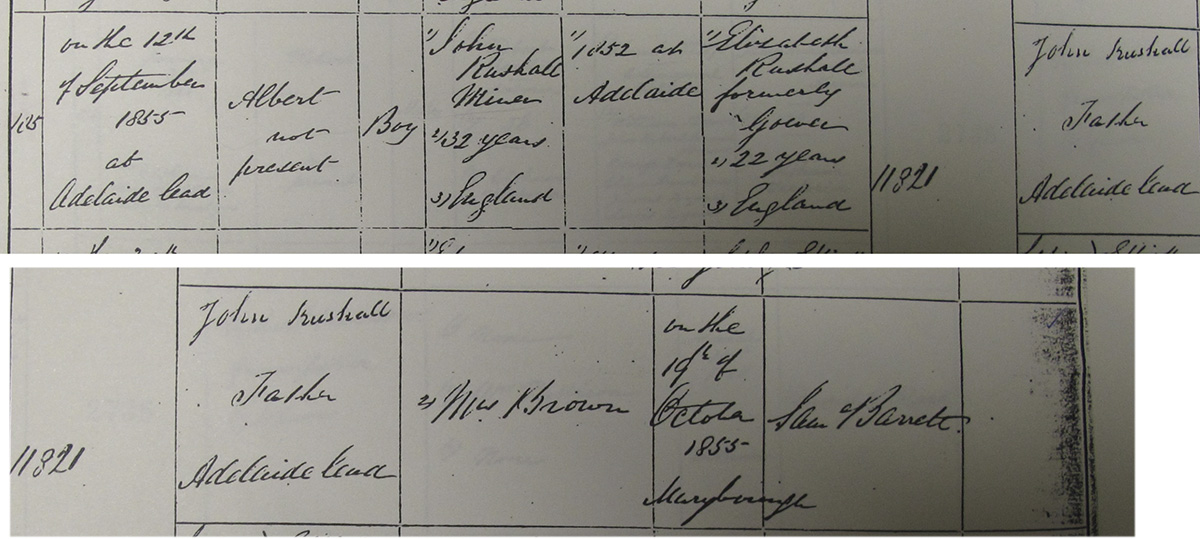 125
on the 12th
of September
1855
at
Adelaide Lead
Albert
not
present
Boy
1) John
Rushall
Miner
2) 32 years
3) England
1) 1852 at
Adelaide
1) Elizabeth
Rushall
formerly
Gower
2) 22 years
3) England
11821
John Rushall
Father
Adelaide Lead
11821
John Rushall
Father
Adelaide Lead
2) Mrs Brown
on the
19th of
October
1855
Maryborough
Barrett